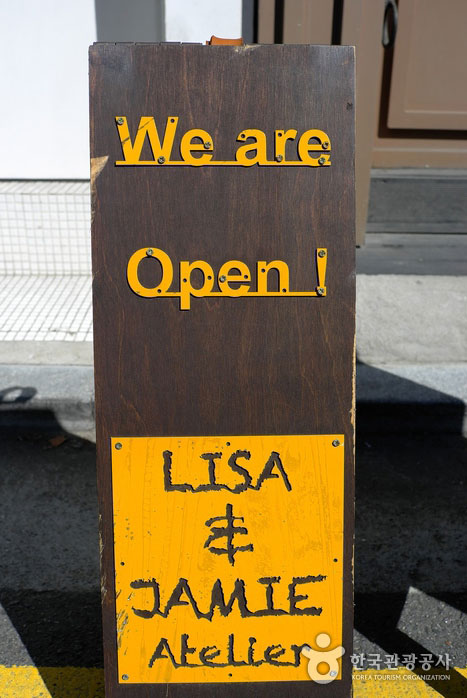 We are
Open !
LISA
&
JAMIE
Atelier
한국관광공사
KOREA TOURISM ORGANIZATION